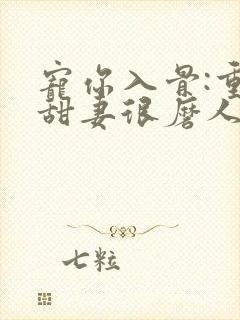 寵你入骨:重
甜妻很磨人
七粒